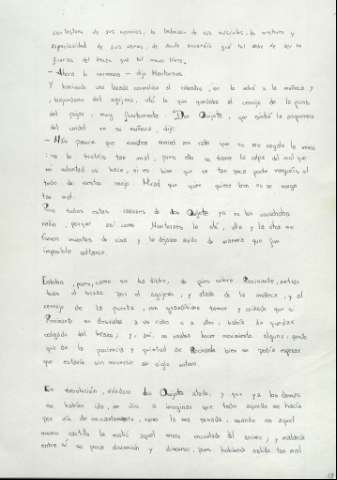 contextura de sus nervios, la trabazón de sus músculos, la anchura y
espaciosidad de sus venas; de donde sacaréis qué tal debe de ser la
fuerza del brazo que tal mano tiene.
- Ahora lo veremos - dijo Maritornes.
Y haciendo una lazada corrediza al cabestro, se la echó a la muñeca y
bajándose del agujero, ató lo que quedaba al cerrojo de la puerta
del pajar, muy fuertemente. Don Quijote, que sintió la aspereza
del cordel en su muñeca, dijo:
- Más parece que vuestra merced me ralla que no me regala la mano
no la tratéis tan mal, pues ella no tiene la culpa del mal que
mi voluntad os hace, ni es bien que en tan poca parte venguéis el
todo de vuestro enojo. Mirad que quien quiere bien no se venga
tan mal.
Pero todas estas razones de don Quijote ya no las escuchaba
nadie, porque así como Maritornes le ató, ella y la otra se
fueron muertas de risa y le dejaron asido de manera que fue
imposible soltarse.
Estaba, pues, como se ha dicho, de pies sobre Rocinante, metido
todo el brazo por el agujero, y atado de la muñeca, y al
cerrojo de la puerta, con grandísimo temor y cuidado que si
Rocinante se desviaba a un cabo o a otro, había de quedar
colgado del brazo; y, así, no osaba hacer movimiento alguno, puesto
que de la paciencia y quietud de Rocinante bien se podía esperar
que estaría sin moverse un siglo entero.
En resolución, viéndose don Quijote atado, y que ya las damas
se habían ido, se dio a imaginar que todo aquello se hacía
por vía de encantamento, como la vez pasada, cuando en aquel
mismo castillo le molió aquel moro encantado del arriero; y maldecía
entre sí su poca discreción y discurso, pues habiendo salido tan mal